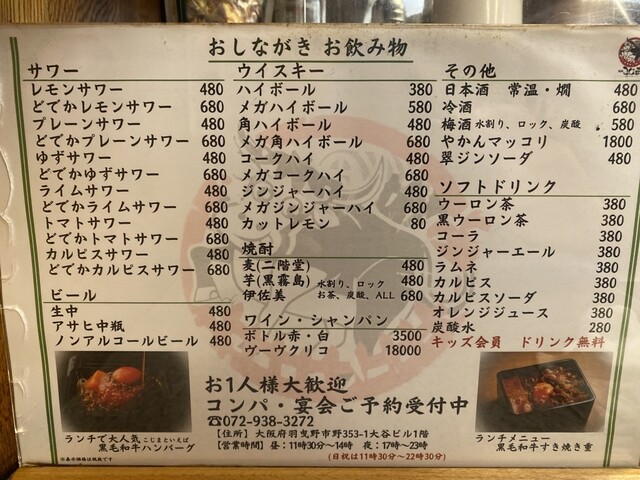 おしながき お飲み物
サワー
レモンサワー 480
どでかレモンサワー 680
プレーンサワー 480
どでかプレーンサワー 680
ゆずサワー 480
どでかゆずサワー 680
ライムサワー 480
どでかライムサワー 680
トマトサワー 480
どでかトマトサワー 680
カルピスサワー 480
どでかカルピスサワー 680
ビール
生中 480
アサヒ中瓶 480
ノンアルコールビール 480
ウイスキー
ハイボール 380
メガハイボール 580
角ハイボール 480
メガ角ハイボール 680
コークハイ 480
メガコークハイ 680
ジンジャーハイ 480
メガジンジャーハイ 680
カットレモン 80
焼酎
麦(二階堂) 480
芋(黒霧島) 水割り、ロック 480
伊佐美 お茶、炭酸、ALL 680
ワイン・シャンパン
ボトル赤・白 3500
ヴーヴクリコ 18000
その他
日本酒 常温・燗 480
冷酒 680
梅酒 水割り、ロック、炭酸 580
やかんマッコリ 1800
翠ジンソーダ 480
ソフトドリンク
ウーロン茶 380
黒ウーロン茶 380
コーラ 380
ジンジャーエール 380
ラムネ 380
カルピス 380
カルピスソーダ 380
オレンジジュース 380
炭酸水 280
キッズ会員 ドリンク無料
お1人様大歓迎
コンパ・宴会ご予約受付中
☎072-938-3272
【住所】 大阪府羽曳野市野353-1大谷ビル1階
【営業時間】 昼:11時30分〜14時 夜:17時〜23時
(日祝は11時30分〜22時30分)
ランチで大人気 こじまといえば
黒毛和牛ハンバーグ
※表示価格は税抜です
ランチメニュー
黒毛和牛すき焼き重